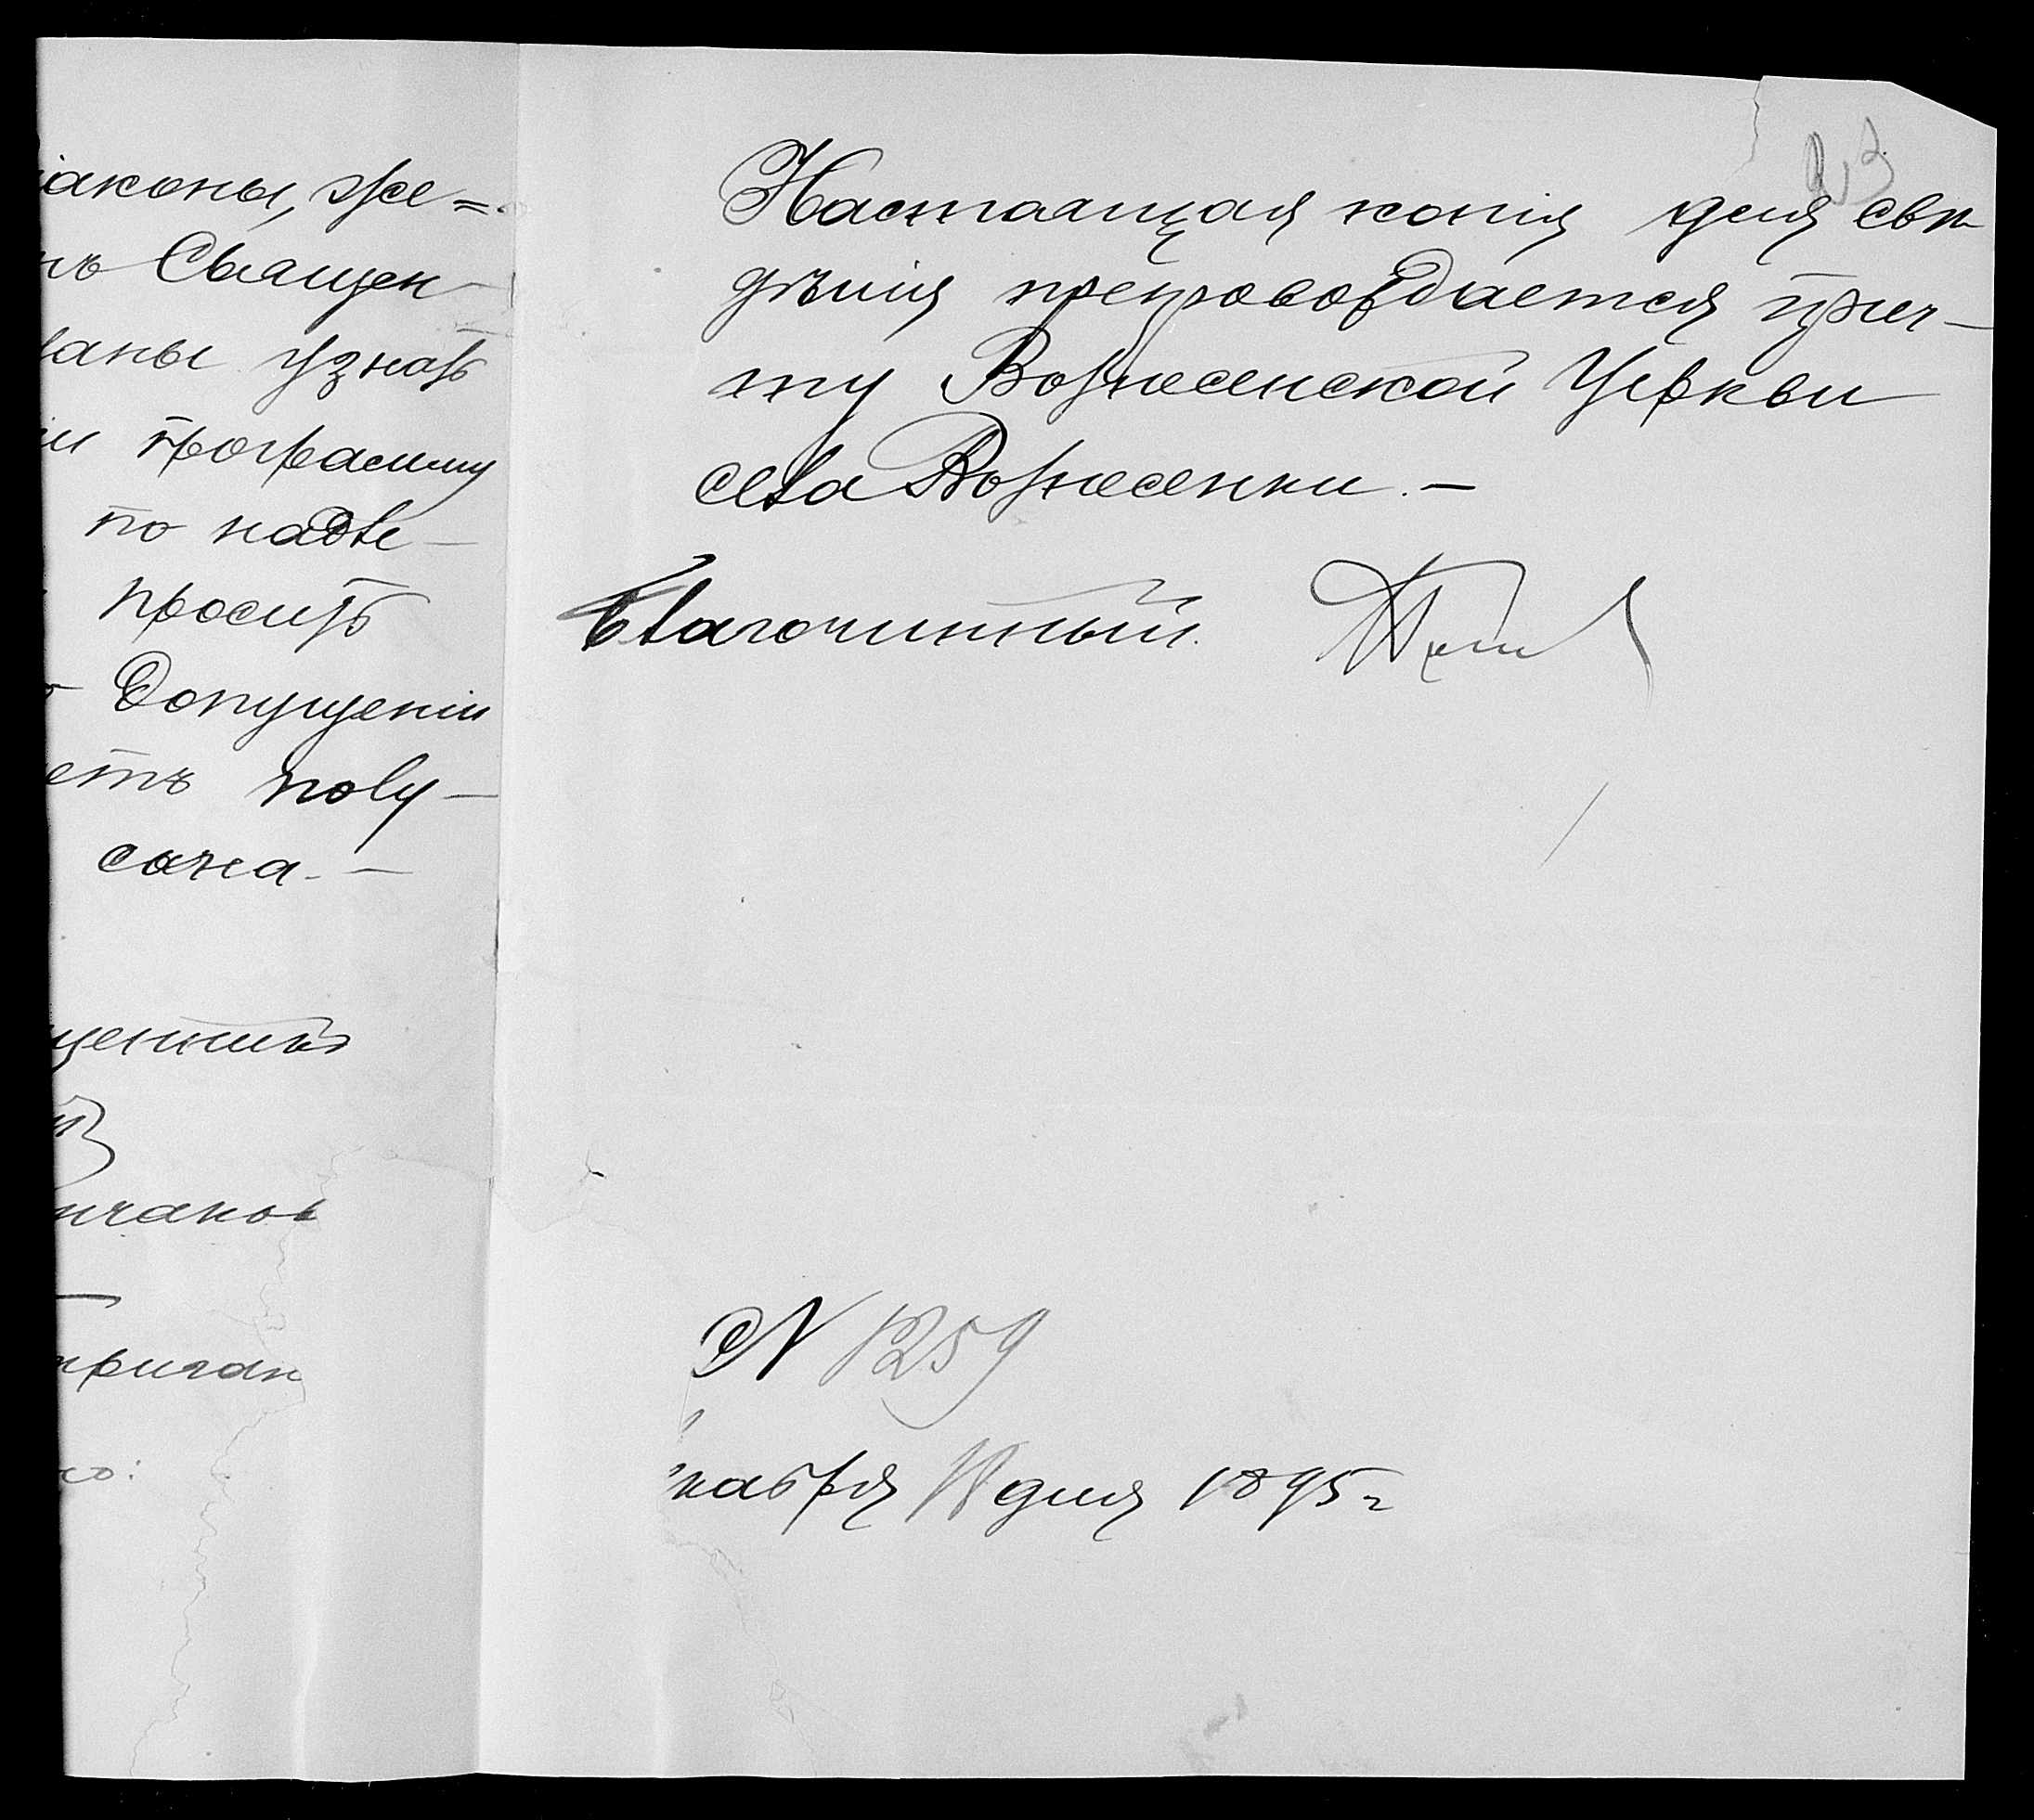 іаконы, же=
нъ Священ-
ваны узнать
ии программу
по надле-
просить
Допущеніи
етъ полу-
сана. -
щенникъ
ичаковъ
но:
Настоящая копія для свѣ-
дѣнія препровождается прич-
ту Вознесенской Церкви
села Вознесенки. -
Благочинный
N 1259
кабря 11 дня 1895 г